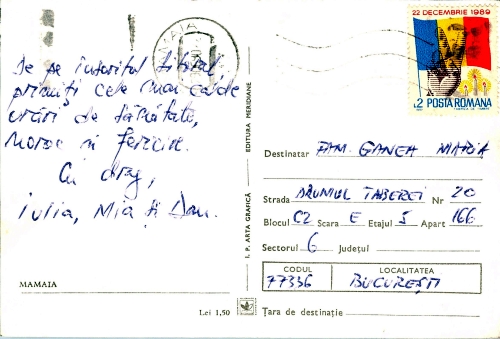 De pe însoritul litoral,
primiți cele mai calde
urări de sănătate,
noroc și fericire.
Cu drag,
Iulia, Mia și Dan.
MAMAIA
Lei 1,50
I. P. ARTA GRAFICĂ
EDITURA MERIDIANE
MAMAIA
22 DECEMBRIE 1989
2 POSTA ROMANA
Destinatar FAM. GANEA MARIA
Strada DRUMUL TABEREI Nr 20
Blocul C2 Scara E Etajul 5 Apart 166
Sectorul 6 Județul
CODUL LOCALITATEA
77336 BUCUREȘTI
Țara de destinație